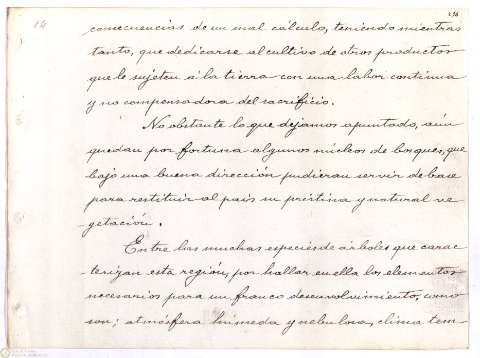 14
consecuencias de un mal cálculo, teniendo mientras
tanto, que dedicarse al cultivo de otros productos
que le sujeten á la tierra con una labor continua
y no compensadora del sacrificio.
No obstante lo que dejamos apuntado, aún
quedan por fortuna algunos núcleos de bosques, que
bajo una buena dirección pudieran servir de base
para restituir al país su prístina y natural ve-
-getación.
Entre las muchas especies de árboles que carac-
-terizan esta región, por hallar en ella los elementos
necesarios para un franco desenvolvimiento, como
son; atmósfera húmeda y nebulosa, clima tem-